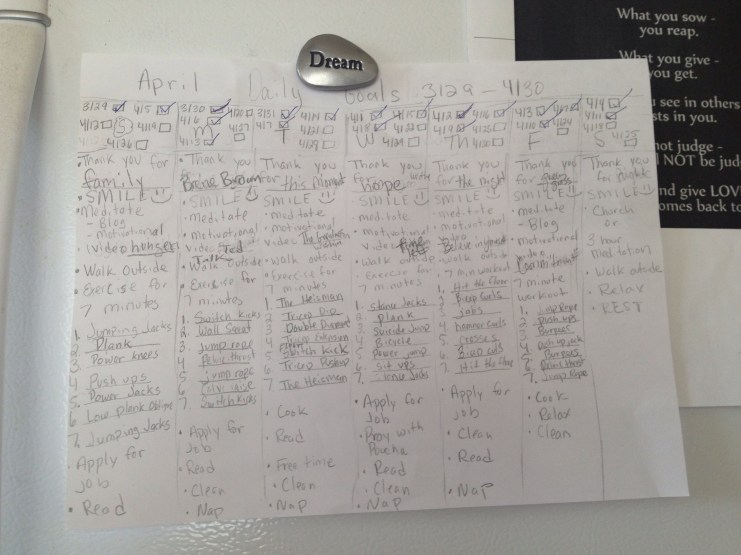 Dream
April Daily Goals 3/29 - 4/30
3/29 4/5
4/12 S 4/19
4/26
• Thank you for
family
• SMILE
• Meditate
- Blog
- motivational
video hunger
• Walk Outside
• Exercise for
7 minutes
1. Jumping Jacks
2. Plank
3. Power knees
4. Push ups
5. Power Jacks
6. Low plank Oblique
7. Jumping Jacks
• Apply for
job
• Read
3/30 4/20
4/6 M 4/27
4/13
• Thank you
Brene Brown
• SMILE
• meditate
• Motivational
video Ted
Talk
• Walk Outside
• Exercise for
7 minutes
1. Switch Kicks
2. Wall Squat
3. jump rope
4. Pelvic thrust
5. jump rope
6.
7. Switch Kicks
• Apply for
Job
• Read
• Clean
• Nap
3/31 4/14
4/7 T 4/21
4/28
Thank you
for this moment
SMILE
• meditate
• motivational
video
• Walk outside
• Exercise for
7 minutes
1. The Heisman
2. Tricep Dip
3. Double Diamond
4. Tricep Extension
5. Switch Kick
6. Tricep
7. The Heisman
• Cook
• Read
• Free time
• Clean
• Nap
4/1 4/15
4/8 W
Thank you
for Hope
SMILE
• meditate
• motivational
video
• Walk outside
• Exercise for
7 minutes
1.
2. Plank
3. Suicide Jump
4. Bicycle
5. Power jump
6. Sit ups
7.
• Apply for
Job
• Play with
• Read
• Clean
• Nap
4/2 4/16
4/9 TH
Thank you
for the night
SMILE
• meditate
• motivational
• walk outside
7 min workout
1. Hit the floor
2. Bicep Curls
3. Jabs
4. hammer curls
5. crosses
6. Bicep curls
7. Hit the floor
• Apply for
Job
• Clean
• Read
• Nap
4/3 4/17
4/10 F
Thank you
for
SMILE
• meditate
- Blog
• motivational
7 minute
workout
1. Jump Rope
2. Push ups
3. Burpees
4.
5. Burpees
6.
7. Jump Rope
• Cook
• Relax
• Clean
4/4
4/11
S 4/25
Thank you
for
SMILE
• Church
or
3 hour
meditation
• Walk outside
• Relax
• REST
What you sow -
you reap.
What you give -
you get.
see in others
sts in you.
not judge -
NOT be jud
nd give LOV
omes back to